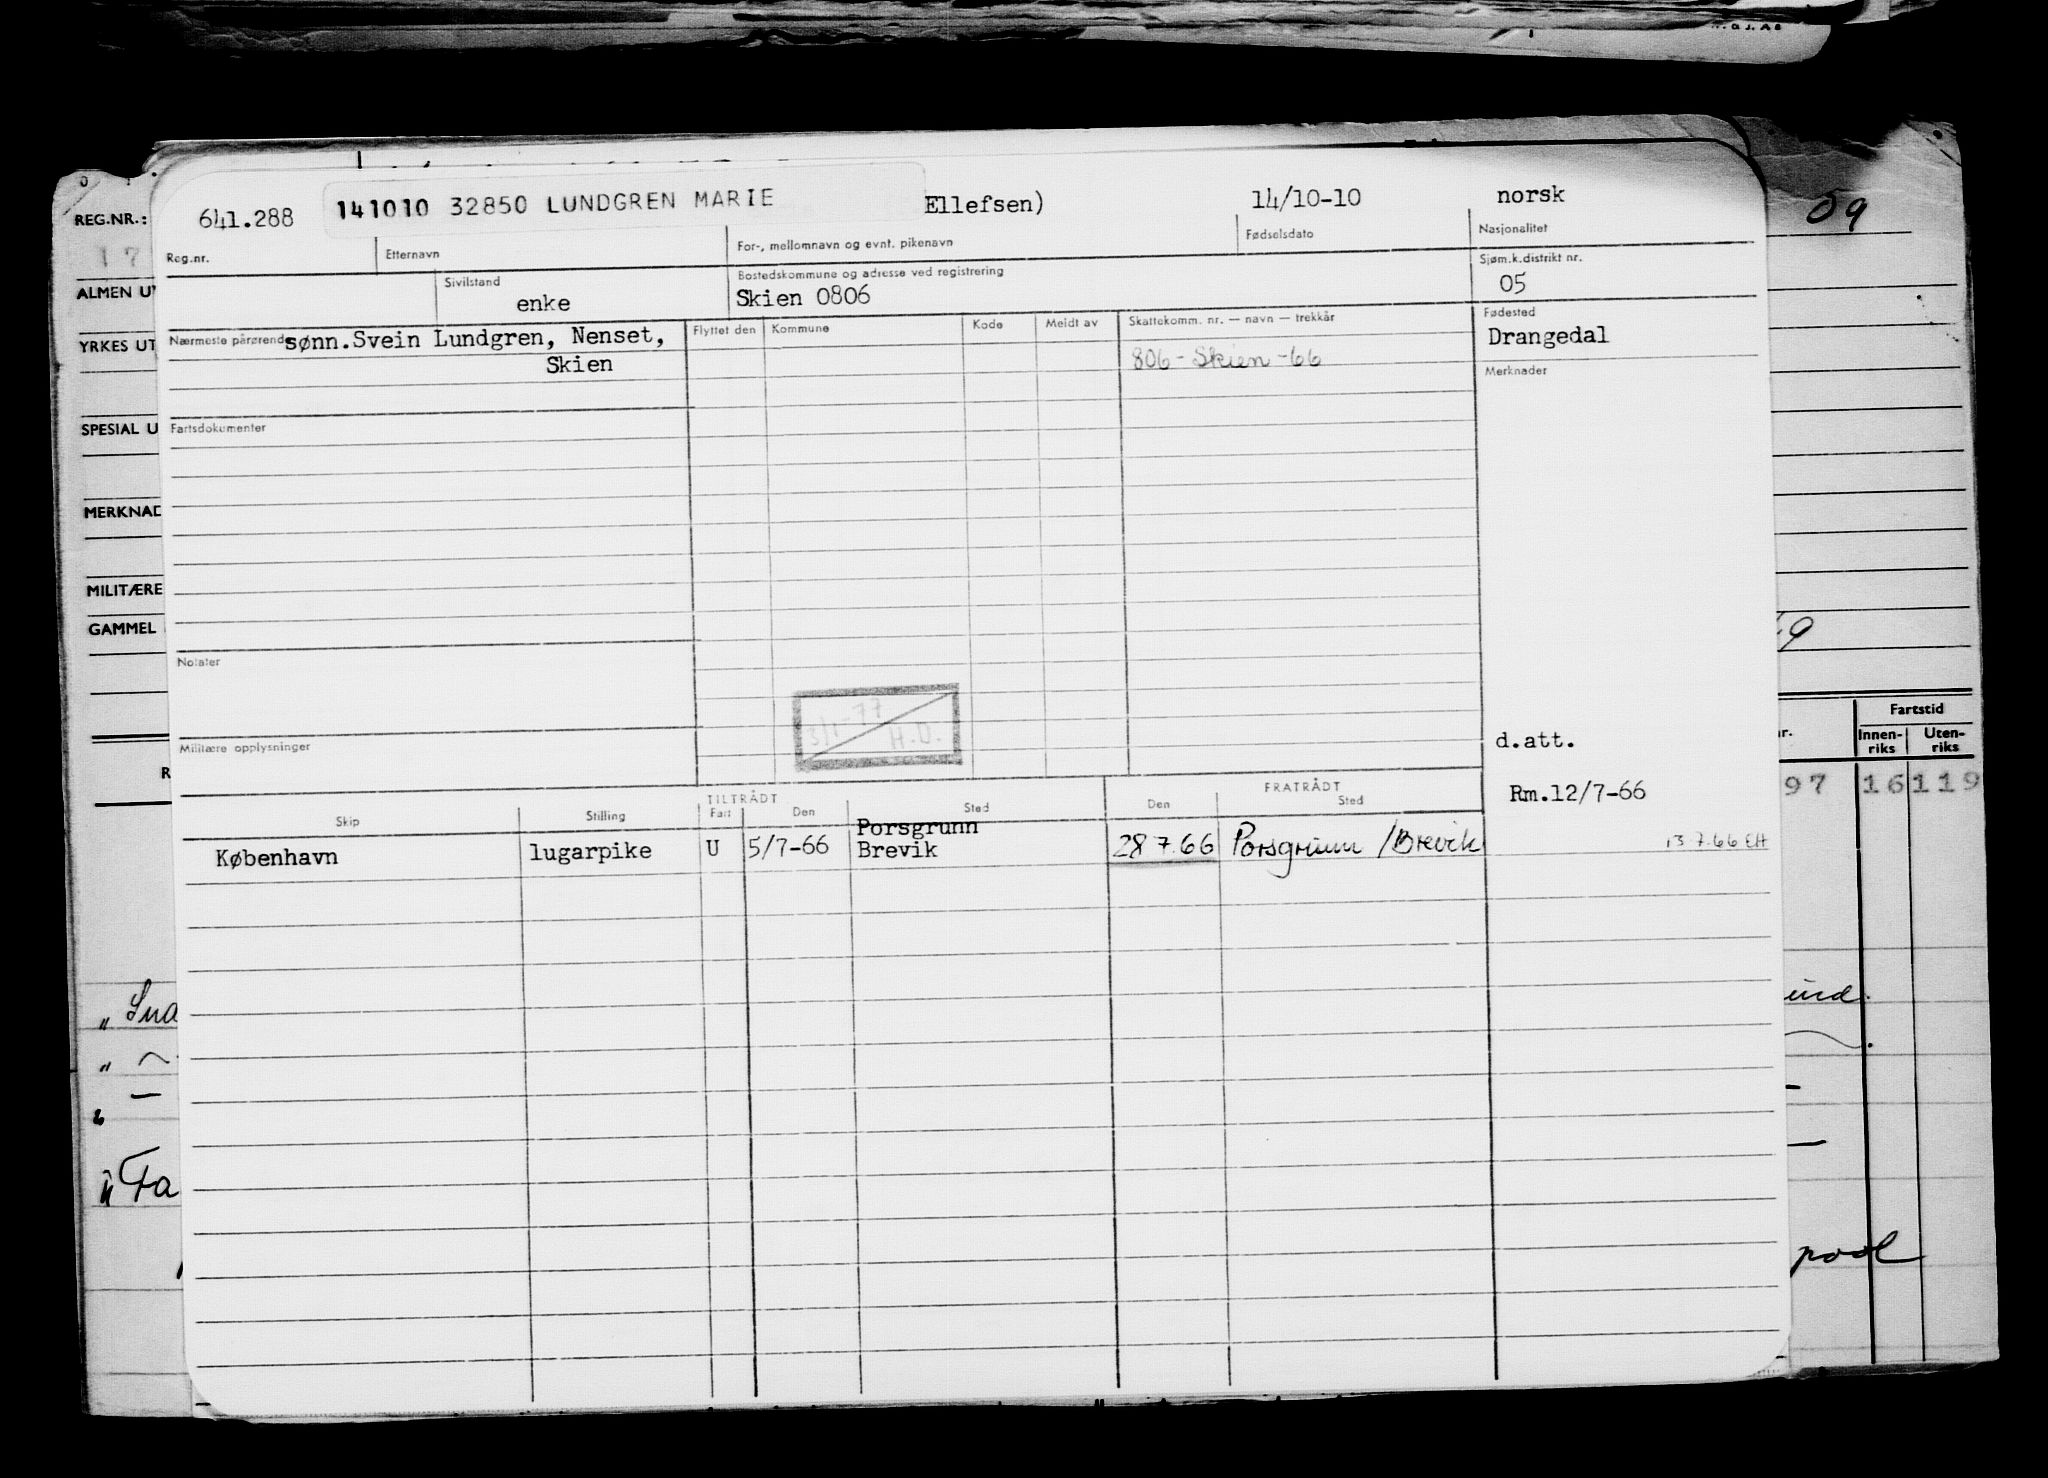 REG.NR.:
17
ALMEN U
YRKES UT
SPESIAL U
MERKNAD
MILITÆRE
GAMMEL
09
641.288 141010 32850 LUNDGREN MARIE Ellefsen) 14/10-10 norsk
Reg.nr. Etternavn For-, mellomnavn og evnt. pikenavn Fødselsdato Nasjonalitet
Sivilstand Bostedskommune og adresse ved registrering Sjøm.k.distrikt nr.
enke Skien 0806 05
Nærmeste pårørende sønn.Svein Lundgren, Nenset, Flyttet den Kommune Kode Meldt av Skattekomm. nr. — navn — trekkår Fødested
Skien 806 - Skien - 66 Drangedal
Merknader
Fartsdokumenter
Notater
3/1-77
H.O.
Militære opplysninger
d.att.
Rm.12/7-66
TILTRÅDT FRATRÅDT
Skip Stilling Fart Den Sted Den Sted
Porsgrunn
København lugarpike U 5/7-66 Brevik 28 7.66 Porsgrunn /Brevik 13.7.66 EH
Fartstid
Innen-
riks
Uten-
riks
97 16 119
pool